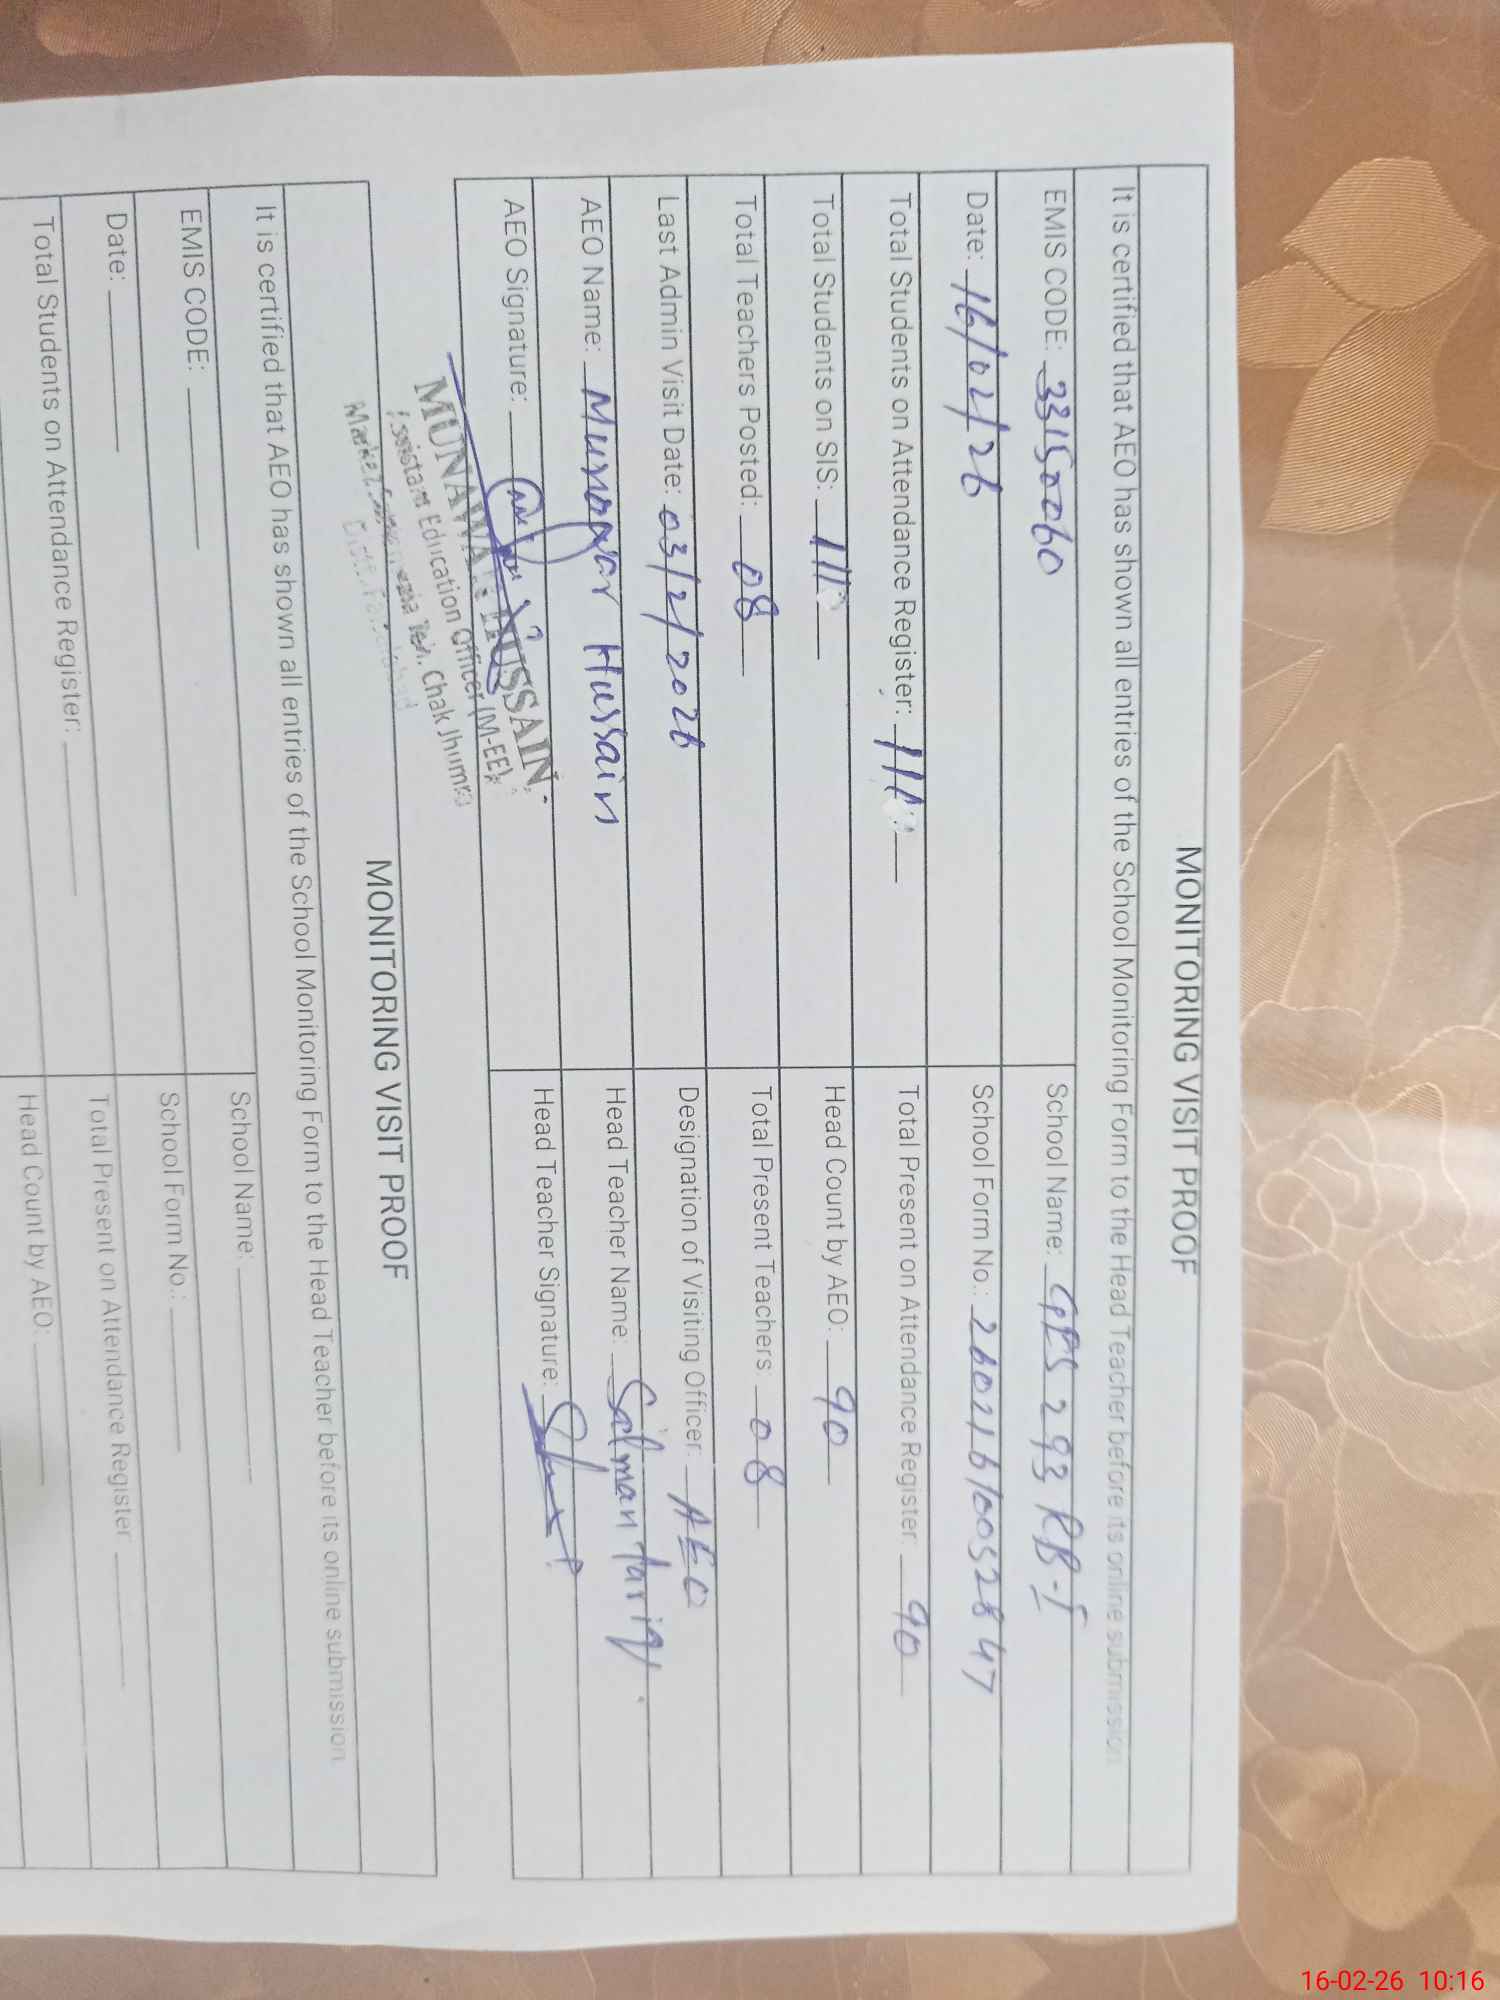 MONITORING VISIT PROOF
It is certified that AEO has shown all entries of the School Monitoring Form to the Head Teacher before its online submission
EMIS CODE: 33150060
School Name: GPS 293 RB-I
Date: 16/02/26
School Form No.: 26021610052847
Total Students on Attendance Register: 111
Total Present on Attendance Register: 90
Total Students on SIS: 111
Head Count by AEO: 90
Total Teachers Posted: 08
Total Present Teachers: 08
Last Admin Visit Date: 03/2/2026
Designation of Visiting Officer: AEO
AEO Name: Munawar Hussain
Head Teacher Name: Salman tariq.
AEO Signature:
Head Teacher Signature:
MUNAWAR HUSSAIN
Assistant Education Officer (M-EE)
Teh. Chak Jhumra
MONITORING VISIT PROOF
It is certified that AEO has shown all entries of the School Monitoring Form to the Head Teacher before its online submission
EMIS CODE:
School Name:
Date:
School Form No.:
Total Students on Attendance Register:
Total Present on Attendance Register:
Head Count by AEO:
16-02-26 10:16